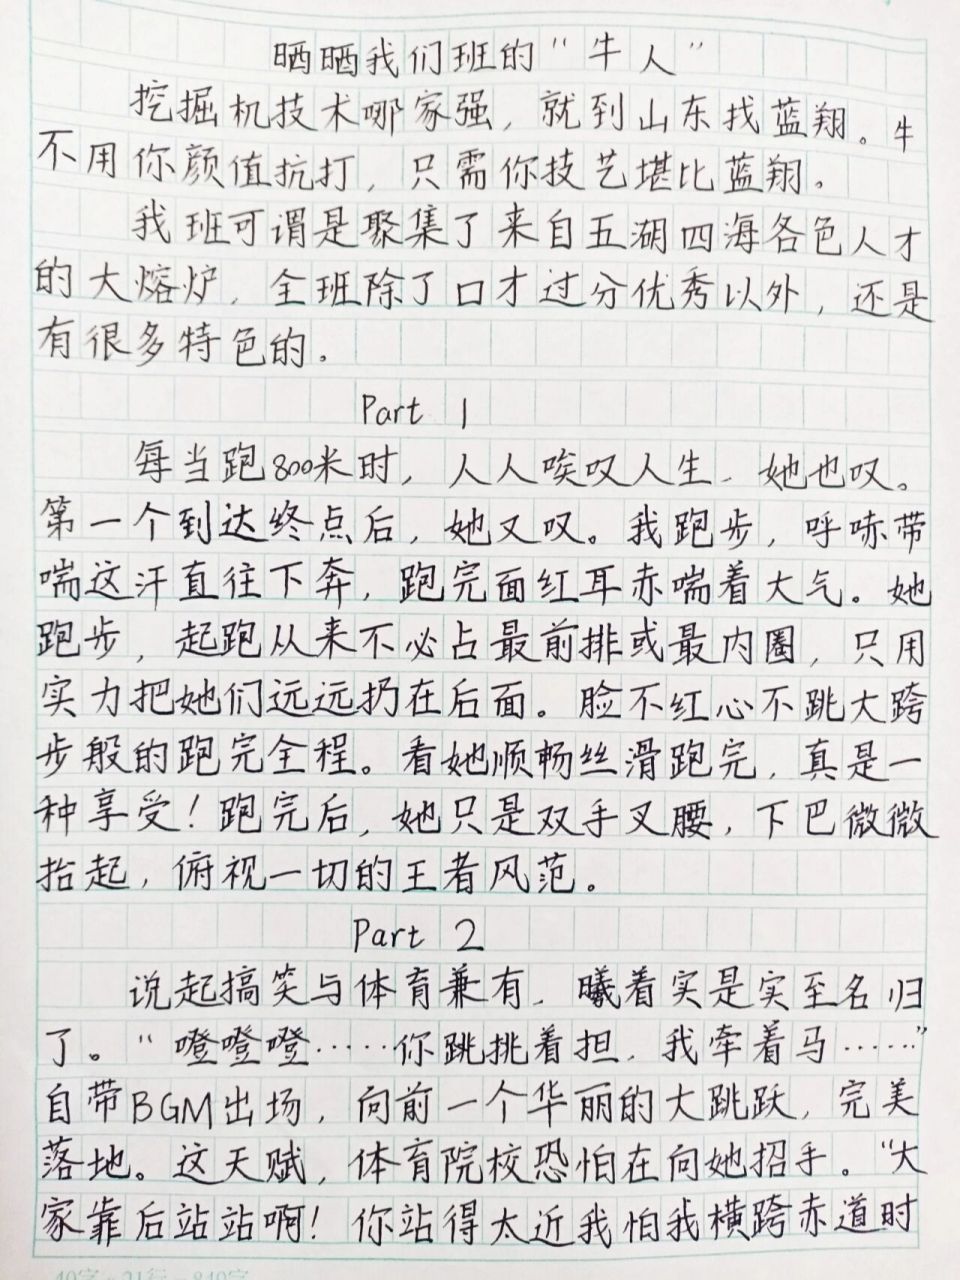 晒晒我们班的“牛人”
挖掘机技术哪家强，就到山东找蓝翔。牛
不用你颜值抗打，只需你技艺堪比蓝翔。
我班可谓是聚集了来自五湖四海各色人才
的大熔炉，全班除了口才过分优秀以外，还是
有很多特色的。
Part 1
每当跑800米时，人人唉叹人生，她也叹。
第一个到达终点后，她又叹。我跑步，呼哧带
喘这汗直往下奔，跑完面红耳赤喘着大气。她
跑步，起跑从来不必占最前排或最内圈，只用
实力把她们远远扔在后面。脸不红心不跳大跨
步般的跑完全程。看她顺畅丝滑跑完，真是一
种享受！跑完后，她只是双手叉腰，下巴微微
抬起，俯视一切的王者风范。
Part 2
说起搞笑与体育兼有，曦着实是实至名归
了。“噔噔噔……你跳挑着担，我牵着马……”
自带BGM出场，向前一个华丽的大跳跃，完美
落地。这天赋，体育院校恐怕在向她招手。“大
家靠后站站啊！你站得太近我怕我横跨赤道时
40字×21行=840字